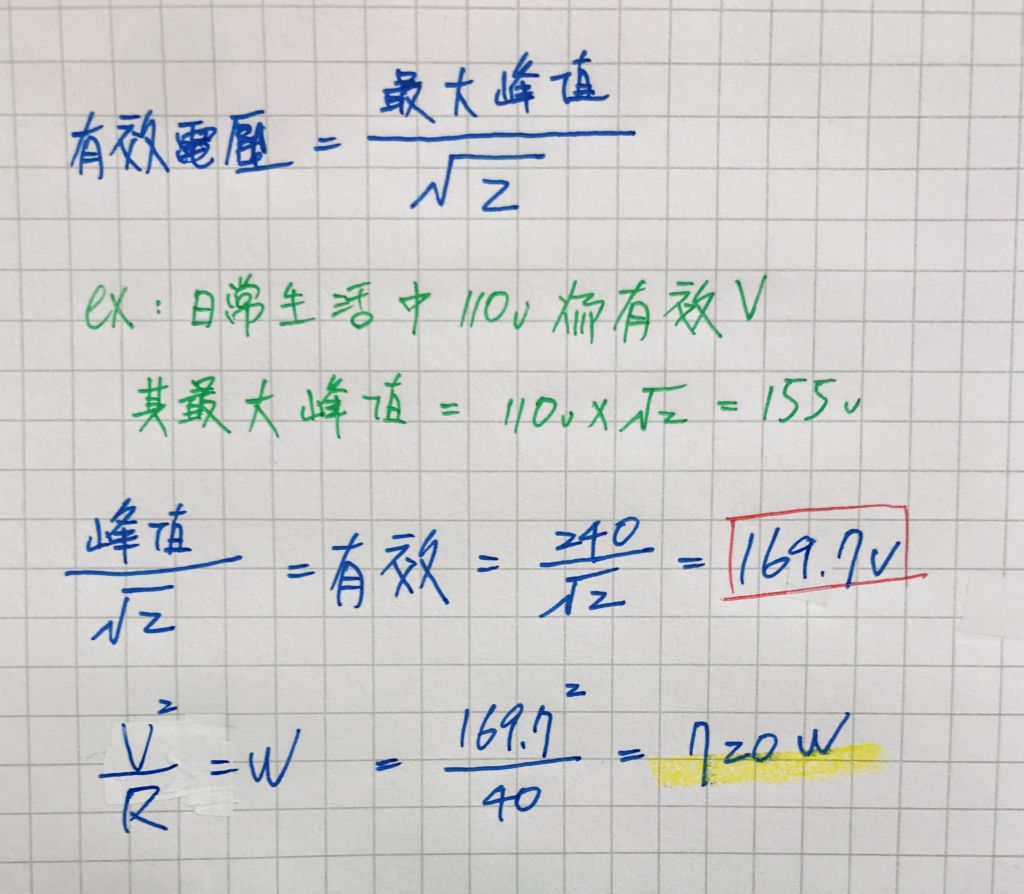 有效電壓 = 最大峰值 / √2
ex：日常生活中 110v 為有效V
其最大峰值 = 110v × √2 = 155v
峰值 / √2 = 有效 = 240 / √2 = 169.7v
V² / R = W = 169.7² / 40 = 720 W